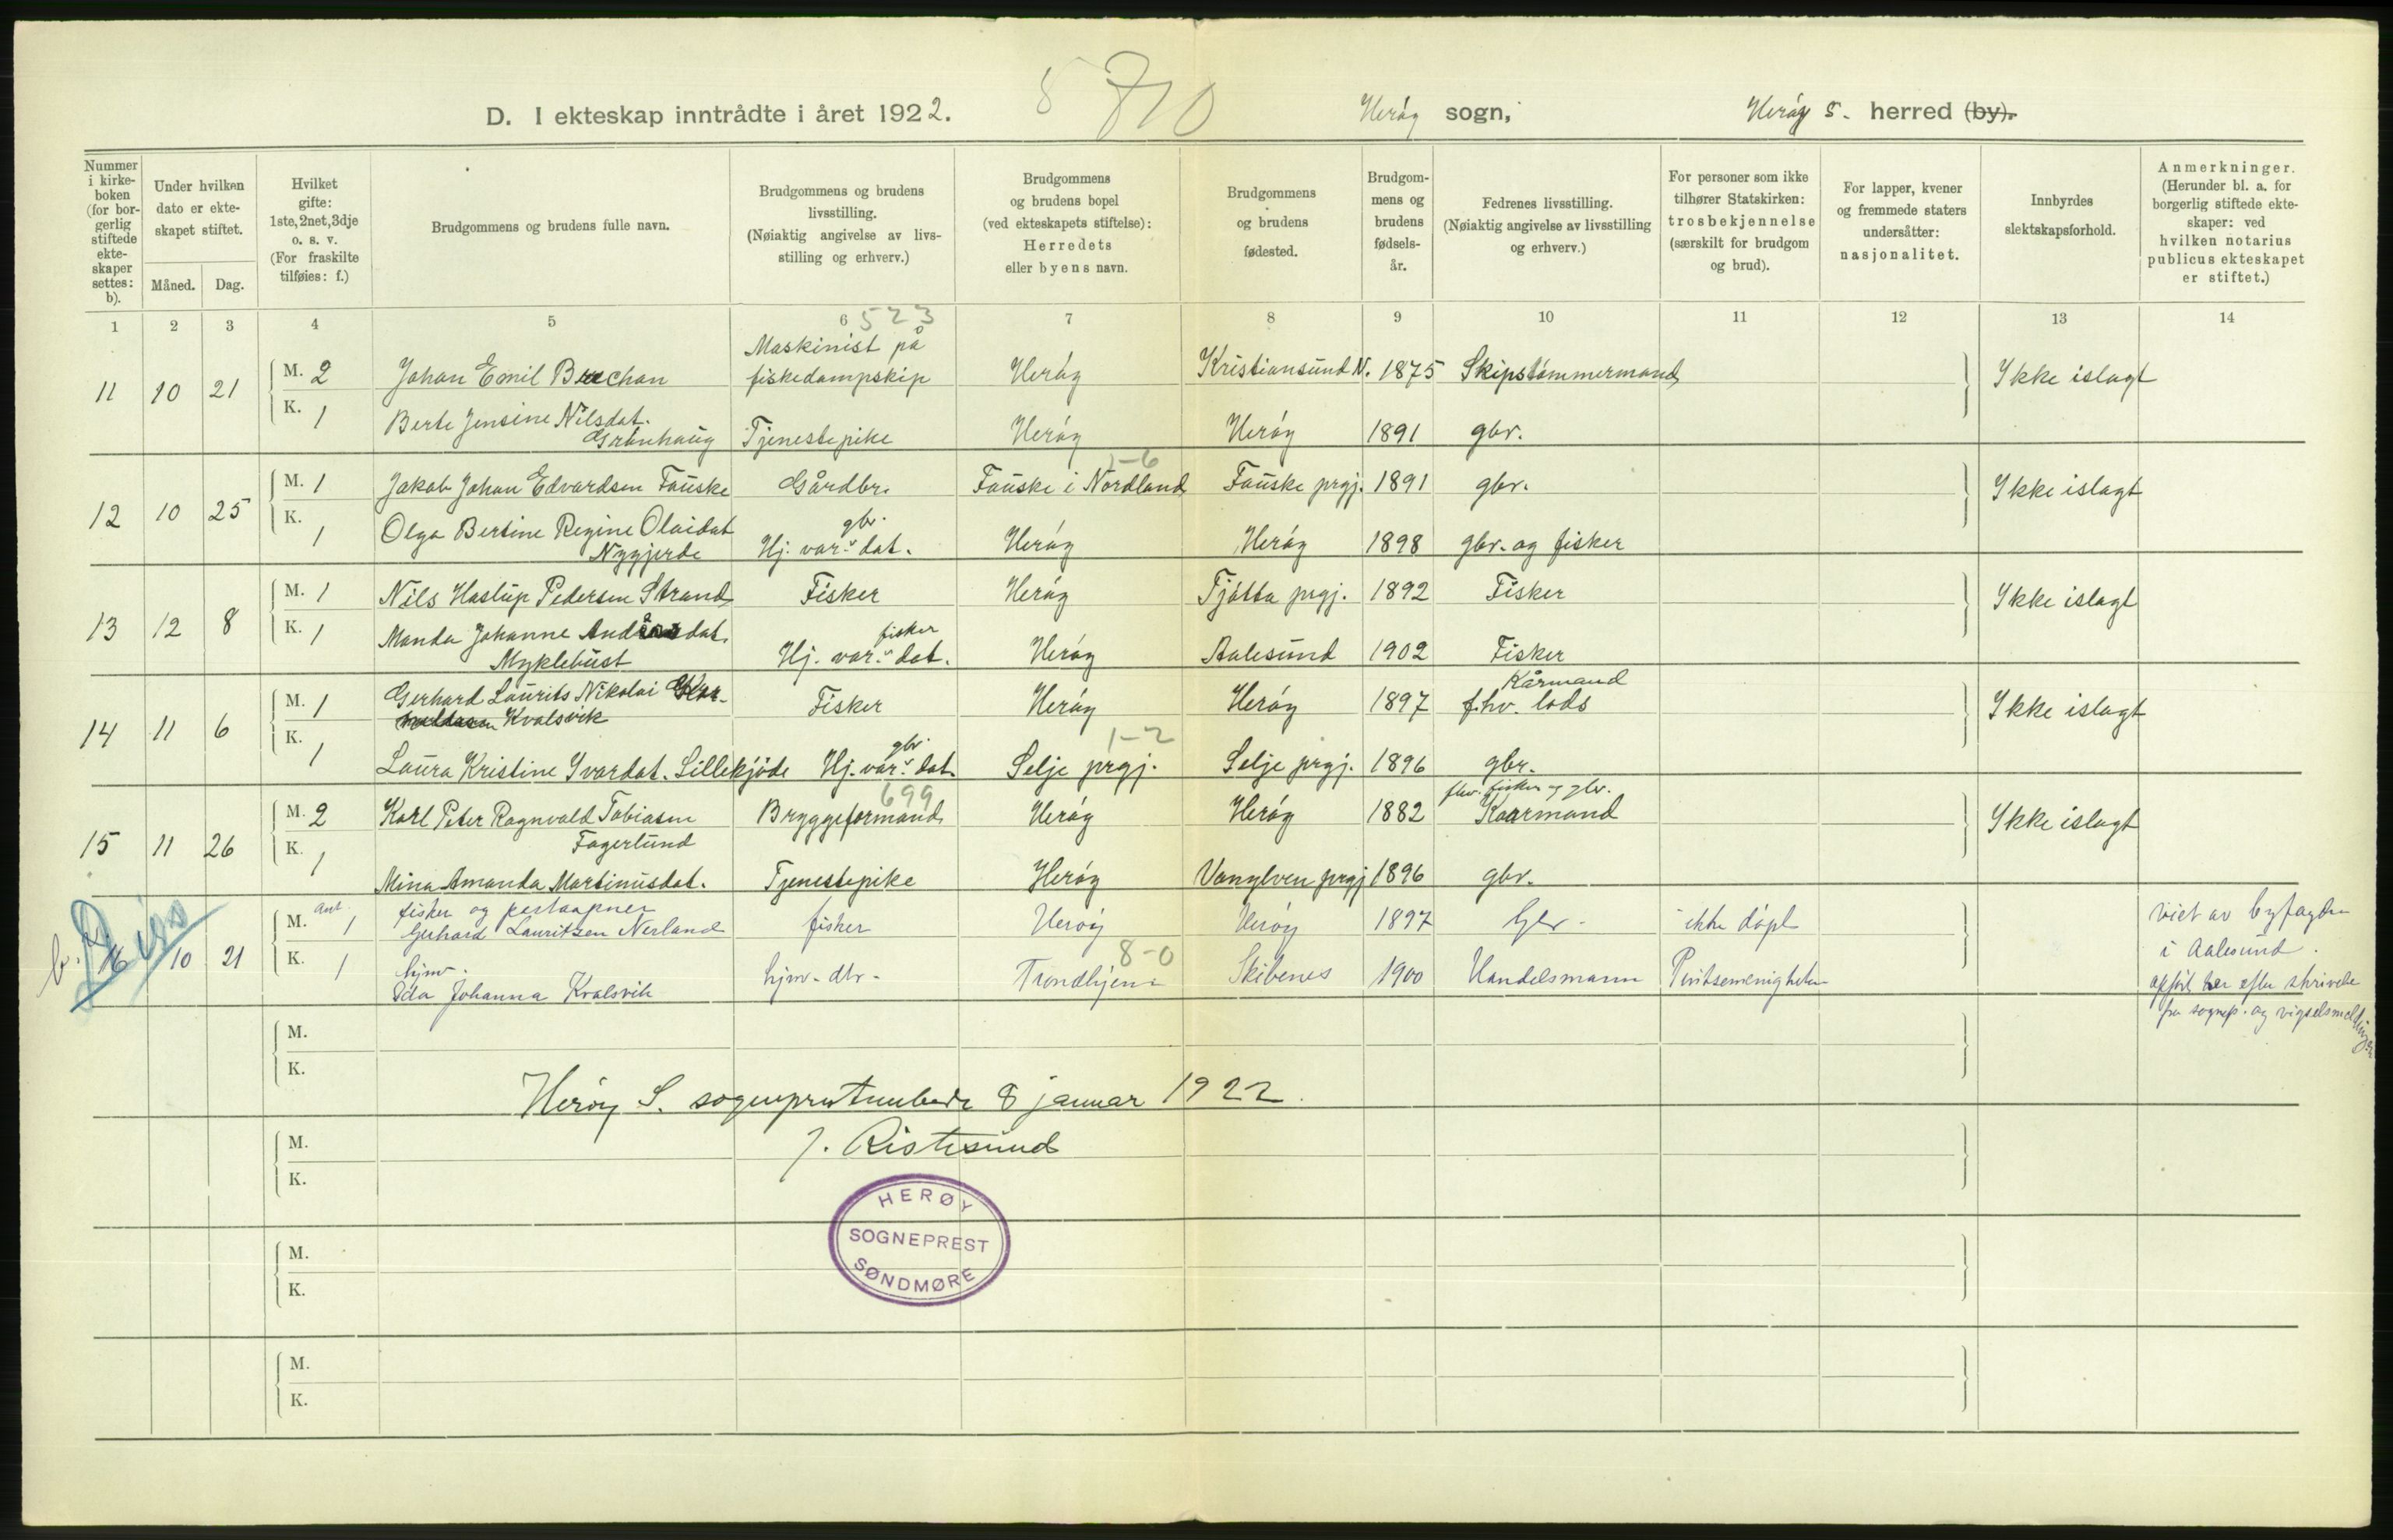 D. I ekteskap inntrådte i året 1922.
8 810
Herøy sogn,
Herøy S. herred (by).
Nummer i kirke-boken (for bor-gerlig stiftede ekte-skaper settes: b).
Under hvilken dato er ekte-skapet stiftet.
Måned. Dag.
Hvilket gifte: 1ste, 2net, 3dje o. s. v. (For fraskilte tilføies: f.)
Brudgommens og brudens fulle navn.
Brudgommens og brudens livsstilling. (Nøiaktig angivelse av livs-stilling og erhverv.)
Brudgommens og brudens bopel (ved ekteskapets stiftelse): Herredets eller byens navn.
Brudgommens og brudens fødested.
Brudgom-mens og brudens fødsels-år.
Fedrenes livsstilling. (Nøiaktig angivelse av livsstilling og erhverv.)
For personer som ikke tilhører Statskirken: trosbekjennelse (særskilt for brudgom og brud).
For lapper, kvener og fremmede staters undersåtter: nasjonalitet.
Innbyrdes slektskapsforhold.
Anmerkninger. (Herunder bl. a. for borgerlig stiftede ekte-skaper: ved hvilken notarius publicus ekteskapet er stiftet.)
1 2 3 4 5 6 7 8 9 10 11 12 13 14
523
Maskinist på
11 10 21 M. 2 Johan Emil Buchan fiskedampskip Herøy Kristiansund N. 1875 Skipstømmermand Ikke islagt
K. 1 Berte Jensine Nilsdat. Grønhaug Tjenestepike Herøy Herøy 1891 gbr.
1-6
12 10 25 M. 1 Jakob Johan Edvardsen Fauske Gårdbr. Fauske i Nordland Fauske prgj. 1891 gbr. Ikke islagt
K. 1 Olga Bertine Regine Olaidat Nygjerde Hj. var. gbr. dat. Herøy Herøy 1898 gbr. og fisker
13 12 8 M. 1 Nils Hastup Pedersen Strand Fisker Herøy Tjøtta prgj. 1892 Fisker Ikke islagt
K. 1 Manda Johanne dat. Myklebust Hj. var. fisker dat. Herøy Aalesund 1902 Fisker
14 11 6 M. 1 Gerhard Laurits Nikolai Kvalsvik Fisker Herøy Herøy 1897 Kårmand f.hv. lods Ikke islagt
1-2
K. 1 Laura Kristine Ivardat. Lillekjøde Hj. var. gbr. dat. Selje prgj. Selje prgj. 1896 gbr.
699
15 11 26 M. 2 Karl Peter Ragnvald Tobiasen Fagerlund Bryggeformand Herøy Herøy 1882 fhv. fisker og gbr. Kaarmand Ikke islagt
K. 1 Mina Amanda Martinusdat. Tjenestepike Herøy Vanylven prgj 1896 gbr.
b. 16 10 21 M. ant. 1 fisker og postaapner Gerhard Lauritsen Nerland fisker Herøy Herøy 1897 Gbr. ikke døpt
8-0
K. 1 hjmv. Ida Johanna Kvalsvik hjmv. dtr. Trondhjem Skibenes 1900 Handelsmann Pintsemenigheten
viet av byfogden
i Aalesund.
opført her efter skrivelse
fra sognep. og vigselsmeldingen
M.
K.
Herøy S. sogneprestembede 8 januar 1922.
M.
J. Ristesund
K.
HERØY
SOGNEPREST
SØNDMØRE
M.
K.
M.
K.